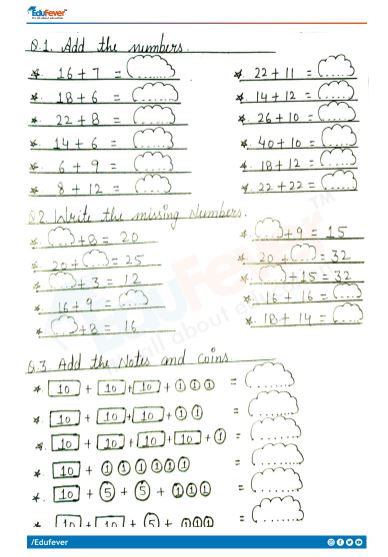 EduFever
It's all about education
Q.1. Add the numbers.
* 16 + 7 =
* 18 + 6 =
* 22 + 8 =
* 14 + 6 =
* 6 + 9 =
* 8 + 12 =
* 22 + 11 =
* 14 + 12 =
* 26 + 10 =
* 40 + 10 =
* 18 + 12 =
* 22 + 22 =
Q.2 Write the missing Numbers.
* + 8 = 20
* 20 + = 25
* + 3 = 12
* 16 + 9 =
* + 8 = 16
* + 9 = 15
* 20 + = 32
* + 15 = 32
* 16 + 16 =
* 18 + 14 =
EduFever TM
all about education
Q.3 Add the Notes and coins
* 10 + 10 + 10 + 1 1 1 =
* 10 + 10 + 10 + 1 1 =
* 10 + 10 + 10 + 10 + 1 =
* 10 + 1 1 1 1 1 1 =
* 10 + 5 + 5 + 1 1 1 =
10 + 10 + 5 + 1 1 1 =
/Edufever